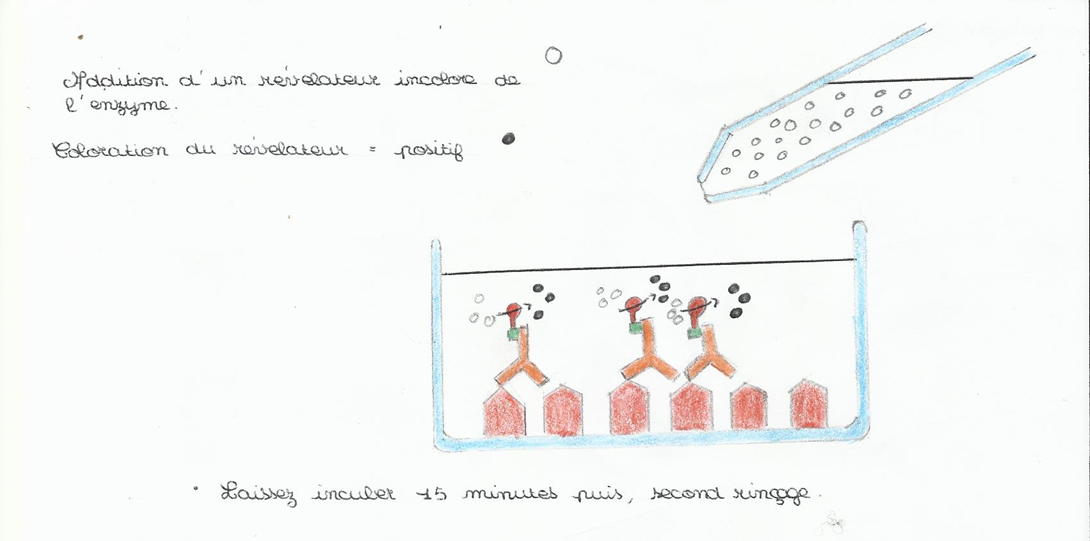 Addition d'un révélateur incolore de
l'enzyme.
Coloration du révélateur = positif
• Laissez incuber 15 minutes puis, second rinçage.